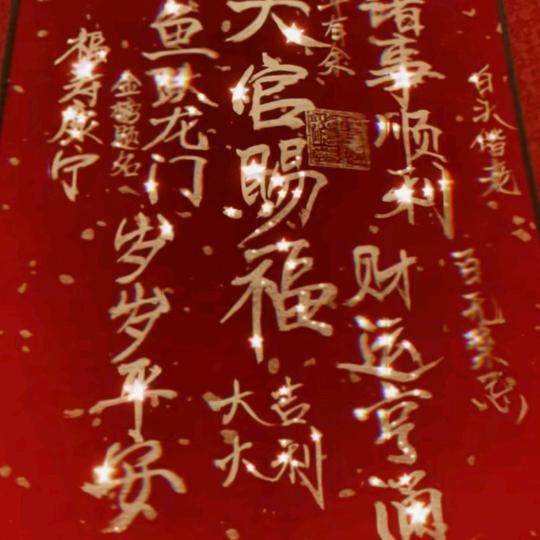 白头偕老
百无禁忌
诸事顺利
财运亨通
年有余
天官赐福
大吉
大利
鱼跃龙门
岁岁平安
金榜题名
福寿康宁